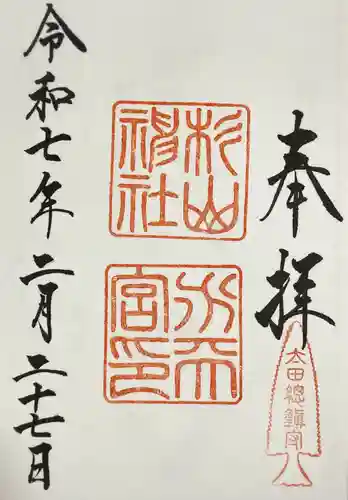 奉拝
太田總鎭守
杉山
神社
水天
宮印
令和七年二月二十七日